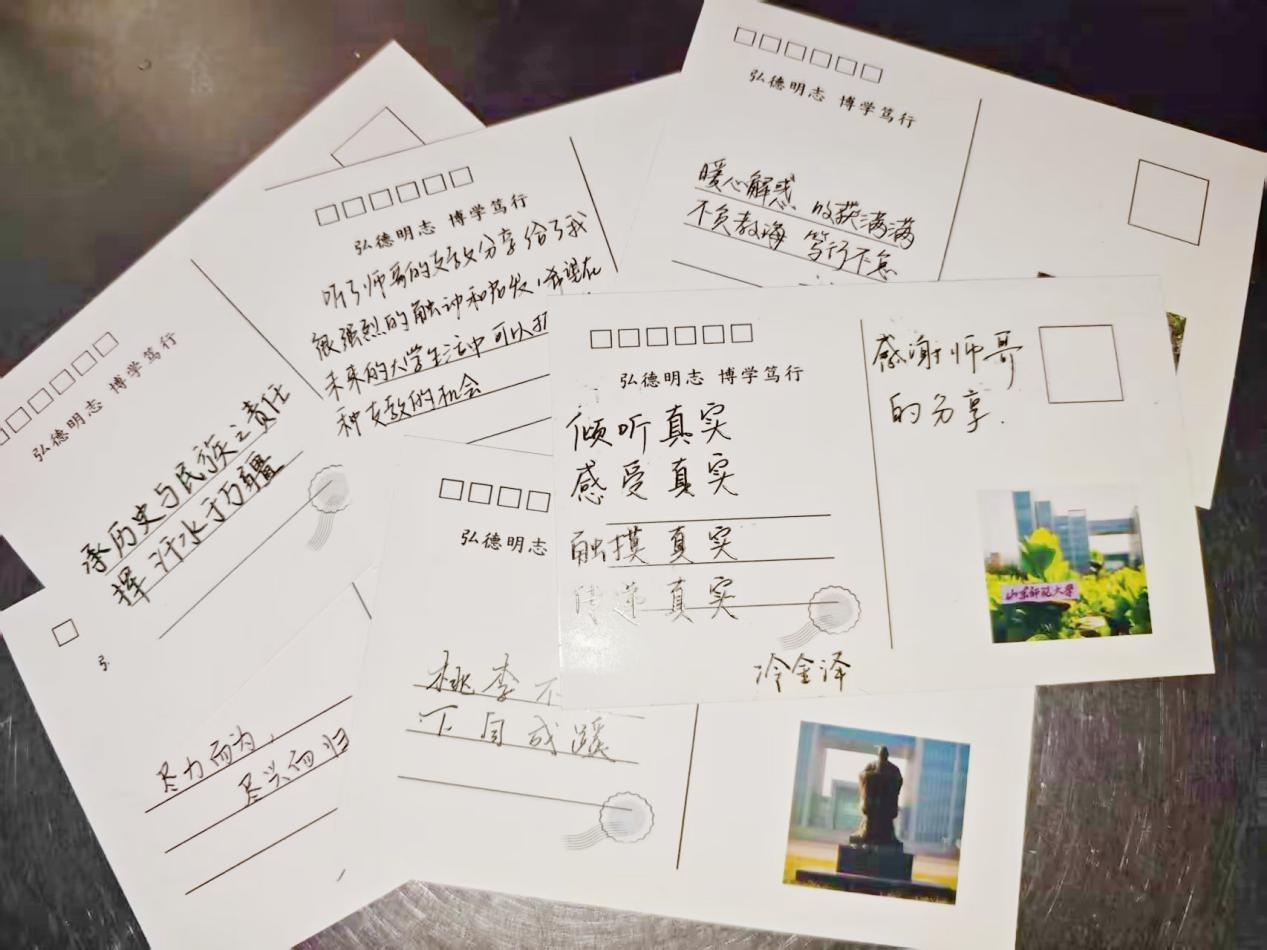 弘德明志 博学笃行
暖心解惑 收获满满
不负教诲 笃行不怠
弘德明志 博学笃行
听了师哥的支教分享给了我
很强烈的触动和启发，希望在
未来的大学生活中可以
种支教的机会
弘德明志 博学笃行
承历史与民族之责任
挥汗水于万疆
弘德明志 博学笃行
倾听真实
感受真实
触摸真实
传递真实
冷金泽
感谢师哥
的分享.
山东师范大学
弘德明志
桃李不
下自成蹊
尽力而为,
尽兴而归